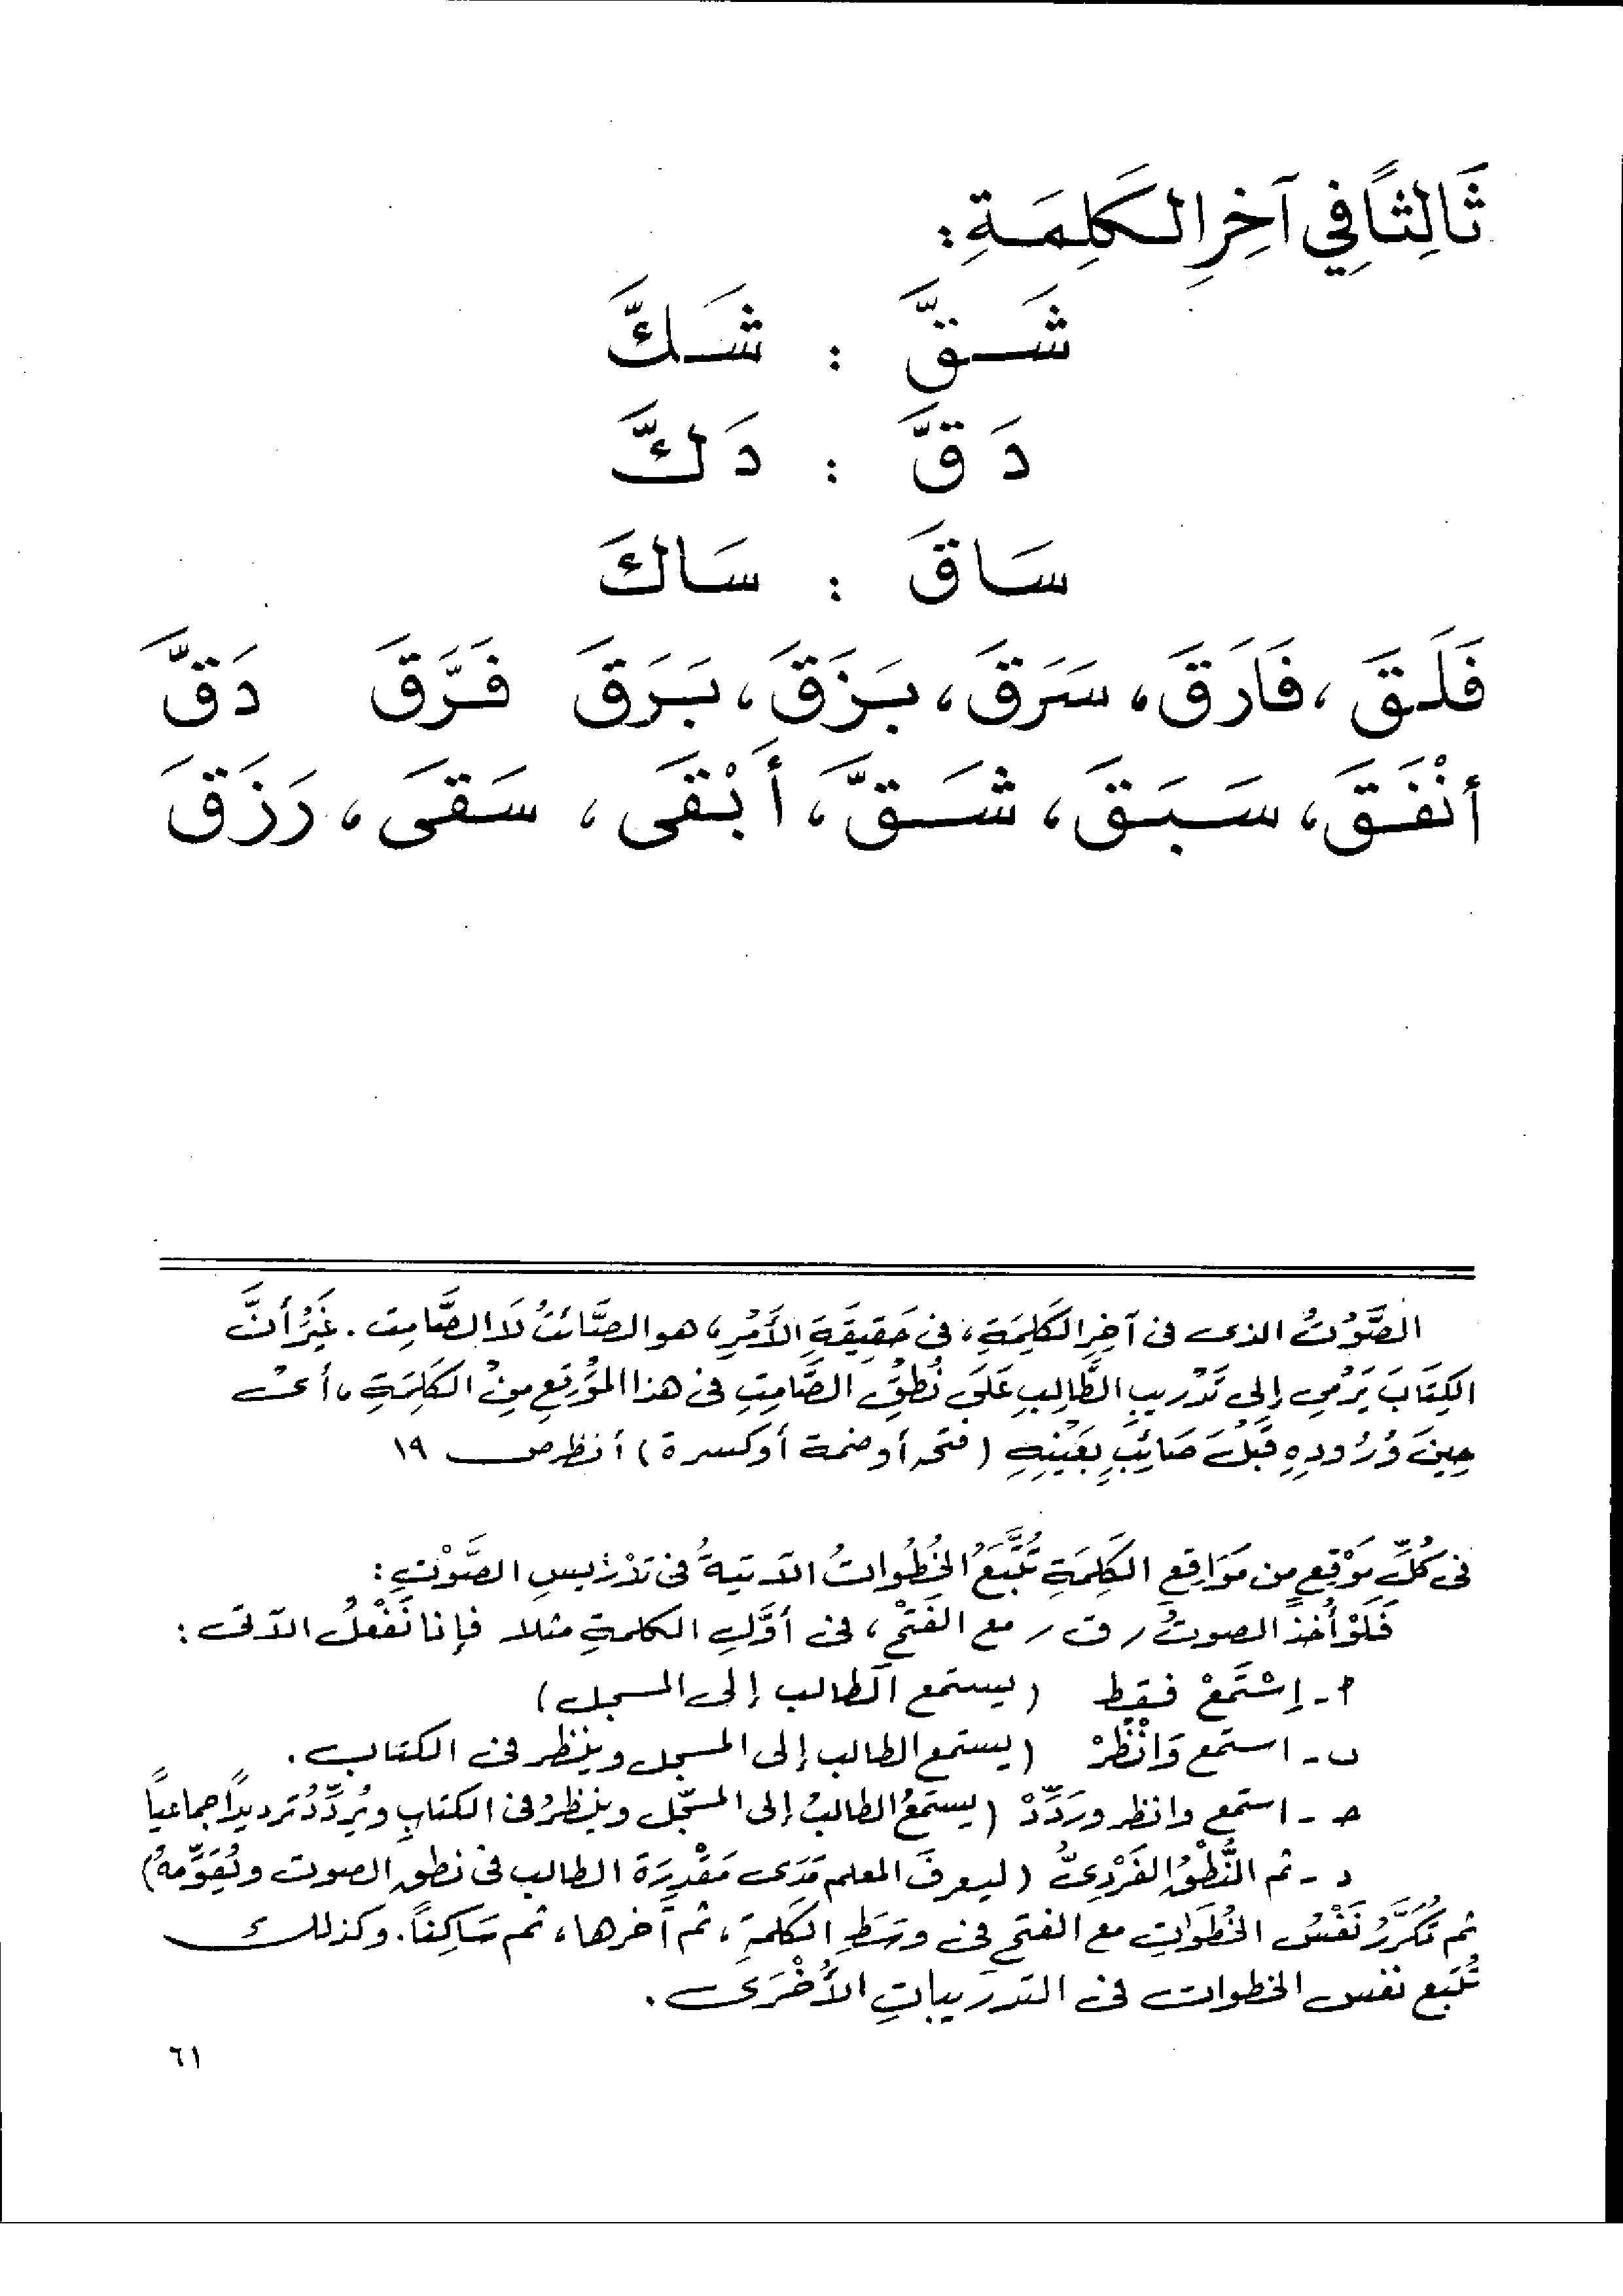 ثَالِثًا فِي آخِرِ الكَلِمَةِ :
شَقَّ : شَكَّ
دَقَّ : دَكَّ
سَاقَ : سَاكَ
فَلَقَ ، فَارَقَ ، سَرَقَ ، بَزَقَ ، بَرَقَ فَرَّقَ دَقَّ
أنْفَقَ ، سَبَقَ ، شَقَّ ، أَبْقَى ، سَقَى ، رَزَقَ
الصَّوْتُ الذى فى آخِرِ الكَلِمَةِ ، فى حَقِيقَةِ الأَمْرِ ، هو الصَّائتُ لَا الصَّامِت . غَيْرُ أنَّ
الكِتَابَ يَرْمِى إلى تَدْرِيبِ الطَّالِبِ عَلَى نُطْقِ الصَّامِتِ فى هذا المَوْقِعِ مِنْ الكَلِمَةِ ، أىْ
حِينَ وُرُودِهِ قَبْلَ صَائِتٍ بِعَيْنِهِ ( فتحه أو ضمة أو كسرة ) أنظر ص ١٩
فى كُلِّ مَوْقِعٍ من مَوَاقِعِ الكَلِمَةِ تُتَّبَعُ الخُطُواتُ الآتيةُ فى تَدْرْيسِ الصَّوْتِ :
فَلَوْ أُخذَ الصوتُ / ق / مع الفَتْحِ ، فى أوَّلِ الكلمةِ مثلا فإننا نَفْعلُ الآتى :
أ - اِسْتَمَعْ فقط ( يستمع الطالب إلى المسجل )
ب - استمع وَانْظُرْ ( يستمع الطالب إلى المسجل وينظر فى الكتاب .
حـ - استمع وانظر ورَدِّدْ ( يستمعُ الطالبُ إلى المسجّل وينظرُ فى الكتابِ ويُردِّدُ ترديدًا جماعيًا
د - ثم النُّطْقُ الفَرْدِىُّ ( ليعرفَ المعلم مَدَى مَقْدِرَة الطالب فى نطق الصوت ويُقَوِّمهُ )
ثم تُكَرَّرُ نَفْسُ الخُطَوَاتِ مع الفتح فى وسَطِ الكَلمةِ ، ثم آخرها ، ثم سَاكِنًا . وكذلك
تُتَبع نفس الخطوات فى التدريباتِ الأُخْرَى .
٦١